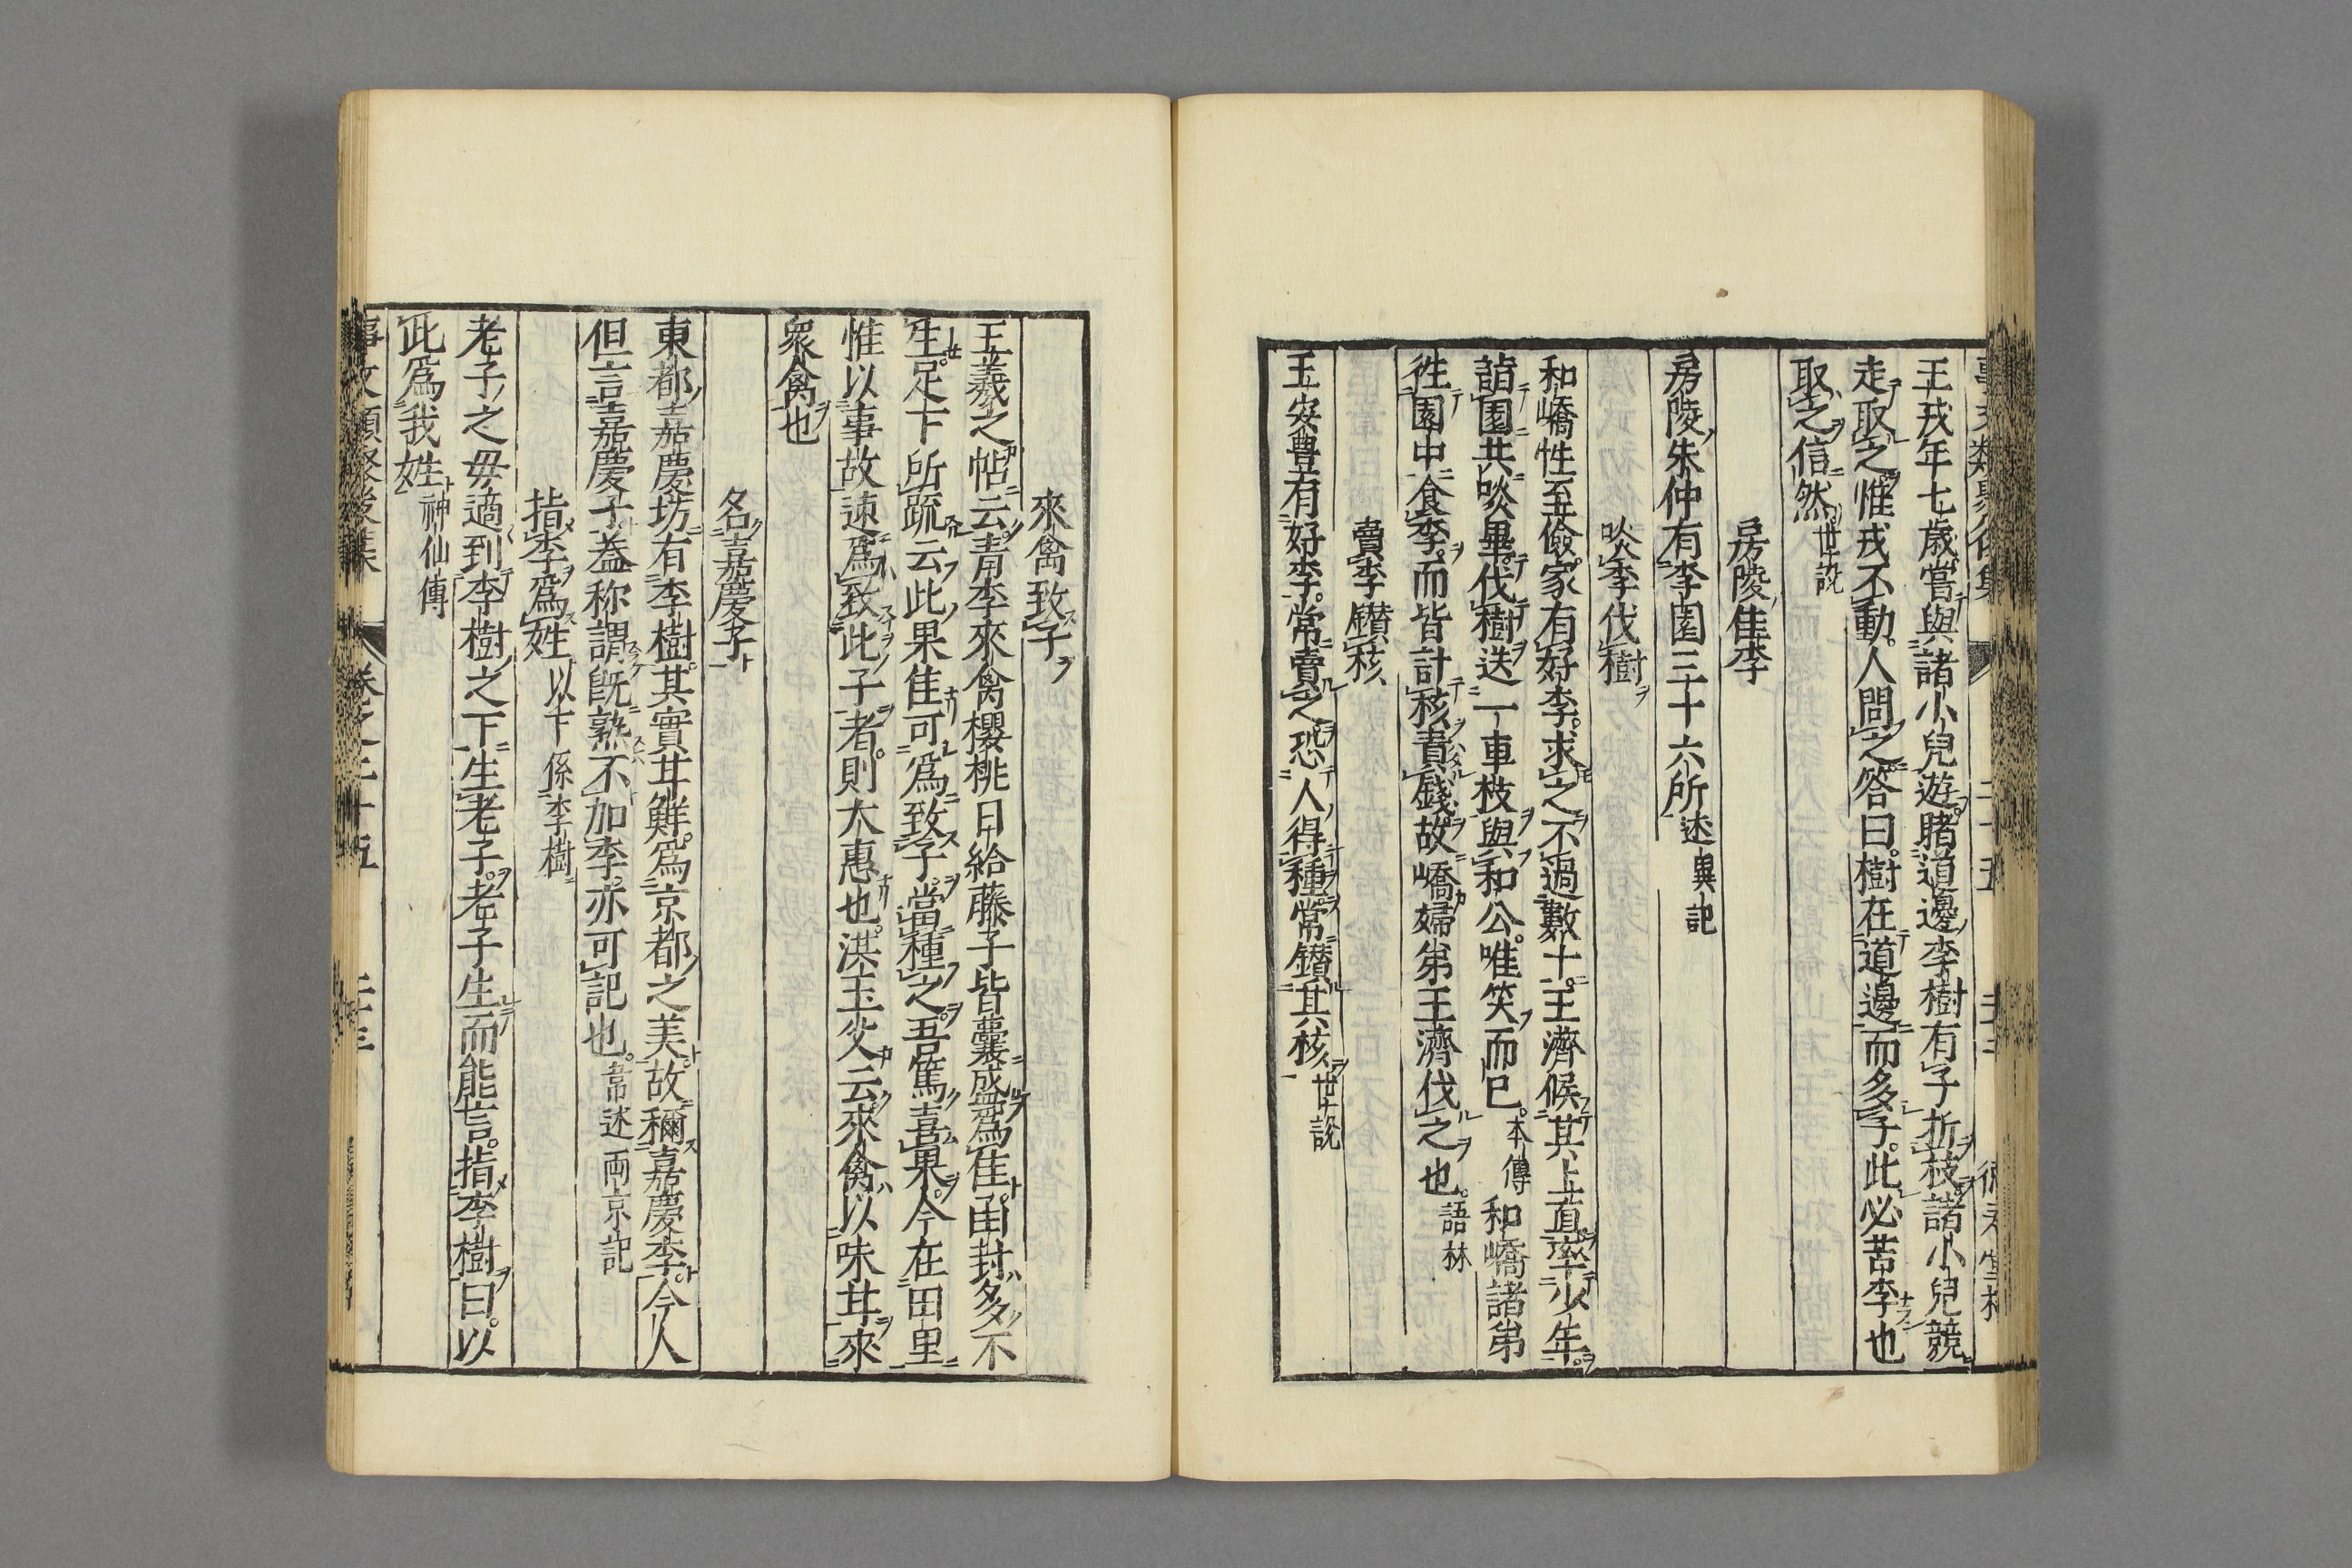 王戎年七歲嘗與諸小兒遊。賭道邊李樹有子折枝。諸小兒競
走取之惟戎不動。人問之答曰。樹在道邊而多子。此必苦李也
取之信然世說
房陵佳李
房陵朱仲有李園三十六所述異記
啖李伐樹
和嶠性至儉。家有好李。求之不過數十。王濟候其上直。率少年。
詣園共啖畢。伐樹送一車枝與和公。唯笑而已。本傳和嶠諸弟
徃園中食李。而皆計核責錢。故嶠婦弟王濟伐之也。語林
賣李鑚核
王安豊有好李。常賣之恐人得種。常鑚其核世說
來禽致子
王羲之帖云。青李來禽櫻桃日給藤子皆囊盛爲佳。函封多不
生。足下所疏云此果佳可爲致子。當種之。吾篤喜果。今在田里
惟以事故速爲致此子者。則大惠也。洪玉父云來禽以味甘來
衆禽也
名嘉慶子
東都嘉慶坊有李樹。其實甘鮮。爲京都之美。故稱嘉慶李。今人
但言嘉慶子。盖称謂旣熟不加李。亦可記也。韋述兩京記
指李爲姓以下係李樹
老子之毋適到李樹之下生老子。老子生而能言。指李樹曰。以
此爲我姓神仙傳
事文類聚後集 卷之二十五 二十三